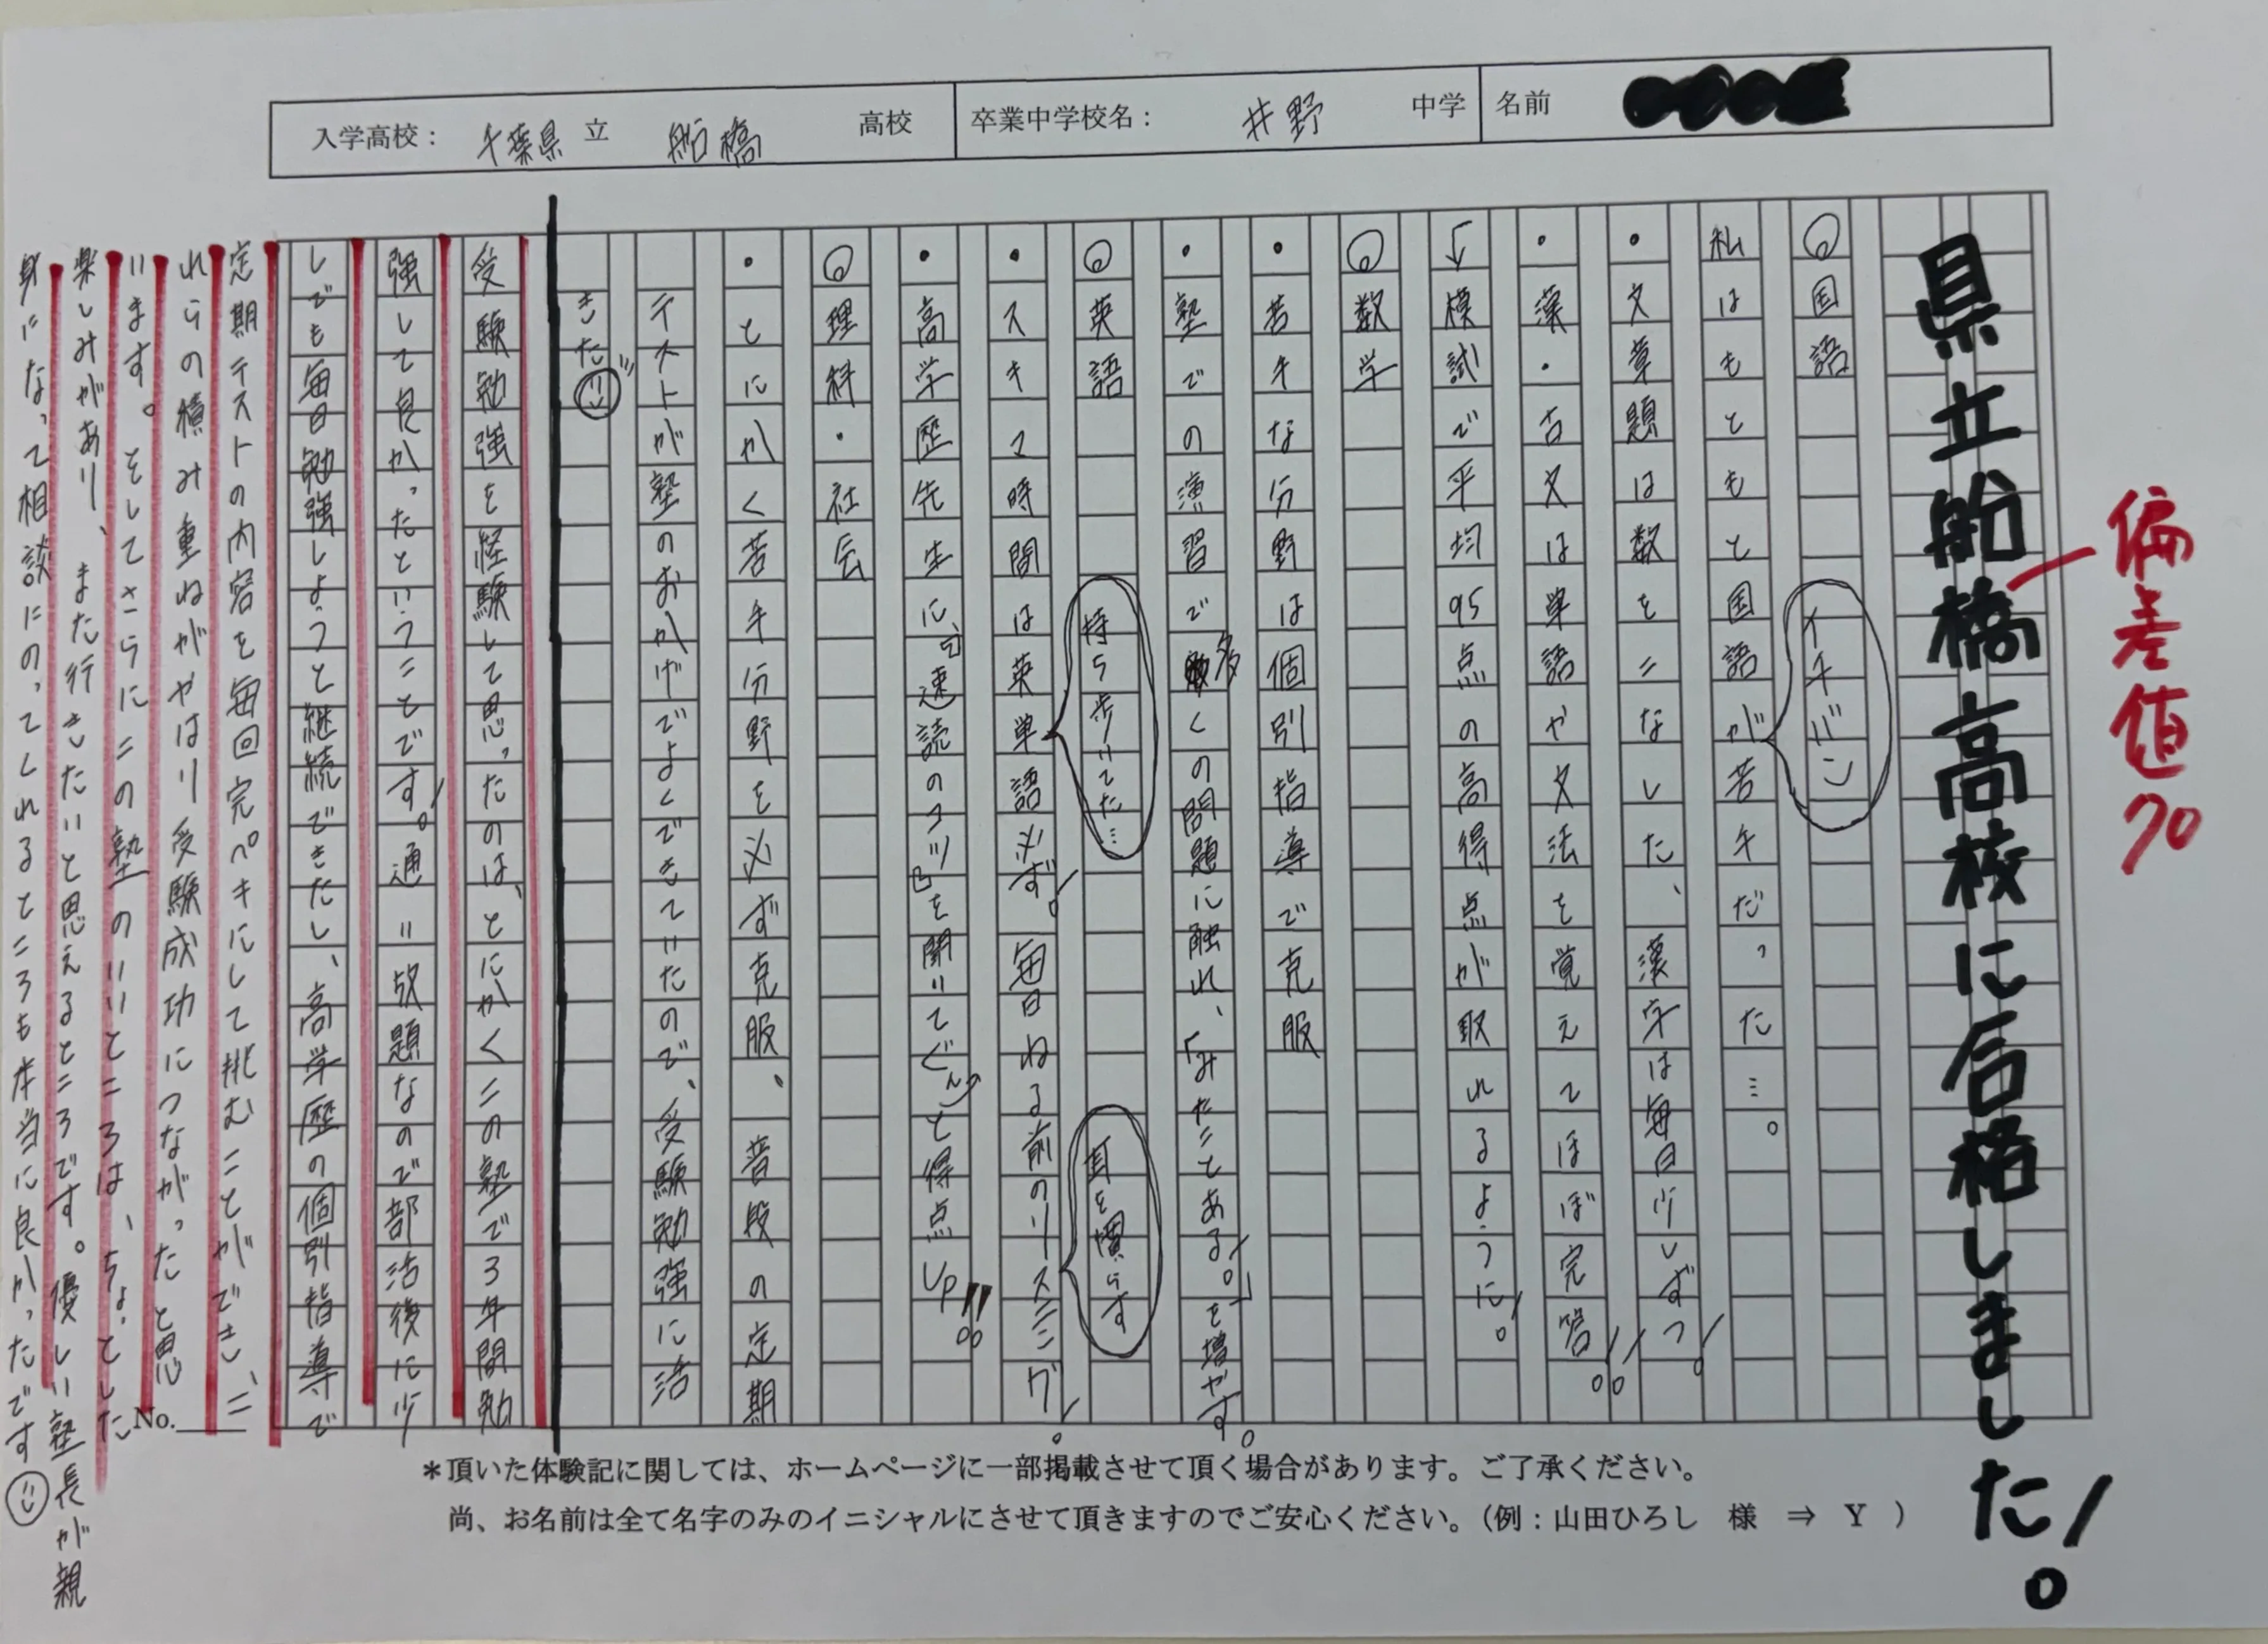 入学高校：千葉県立 船橋 高校
卒業中学校名：井野 中学
名前
県立船橋高校に合格しました！
偏差値70
◎国語
イチバン
私はもともと国語が苦手だった…。
・文章題は数をこなした、漢字は毎日少しずつ！
・漢・古文は単語や文法を覚えてほぼ完答!!
↓模試で平均95点の高得点が取れるように！
◎数学
・苦手な分野は個別指導で克服
・塾での演習で多くの問題に触れ、「みたことある！」を増やす。
◎英語
持ち歩いてた…
耳を慣らす
・スキマ時間は英単語必ず！毎日ねる前のリスニング！
・高学歴先生に『速読のコツ』を聞いてぐんと得点UP!!
◎理科・社会
・とにかく苦手分野を必ず克服、普段の定期
テストが塾のおかげでよくできていたので、受験勉強に活
きた
受験勉強を経験して思ったのは、とにかくこの塾で3年間勉
強して良かったということです！通い放題なので部活後に少
しでも毎日勉強しようと継続できたし、高学歴の個別指導で
定期テストの内容を毎回完ペキにして挑むことができ、こ
れらの積み重ねがやはり受験成功につながったと思
います。そしてさらにこの塾のいいところは、ちょっとした
楽しみがあり、また行きたいと思えるところです。優しい塾長が親
身になって相談にのってくれるところも本当に良かったです
No.
＊頂いた体験記に関しては、ホームページに一部掲載させて頂く場合があります。ご了承ください。
尚、お名前は全て名字のみのイニシャルにさせて頂きますのでご安心ください。（例：山田ひろし 様 ⇒ Y ）